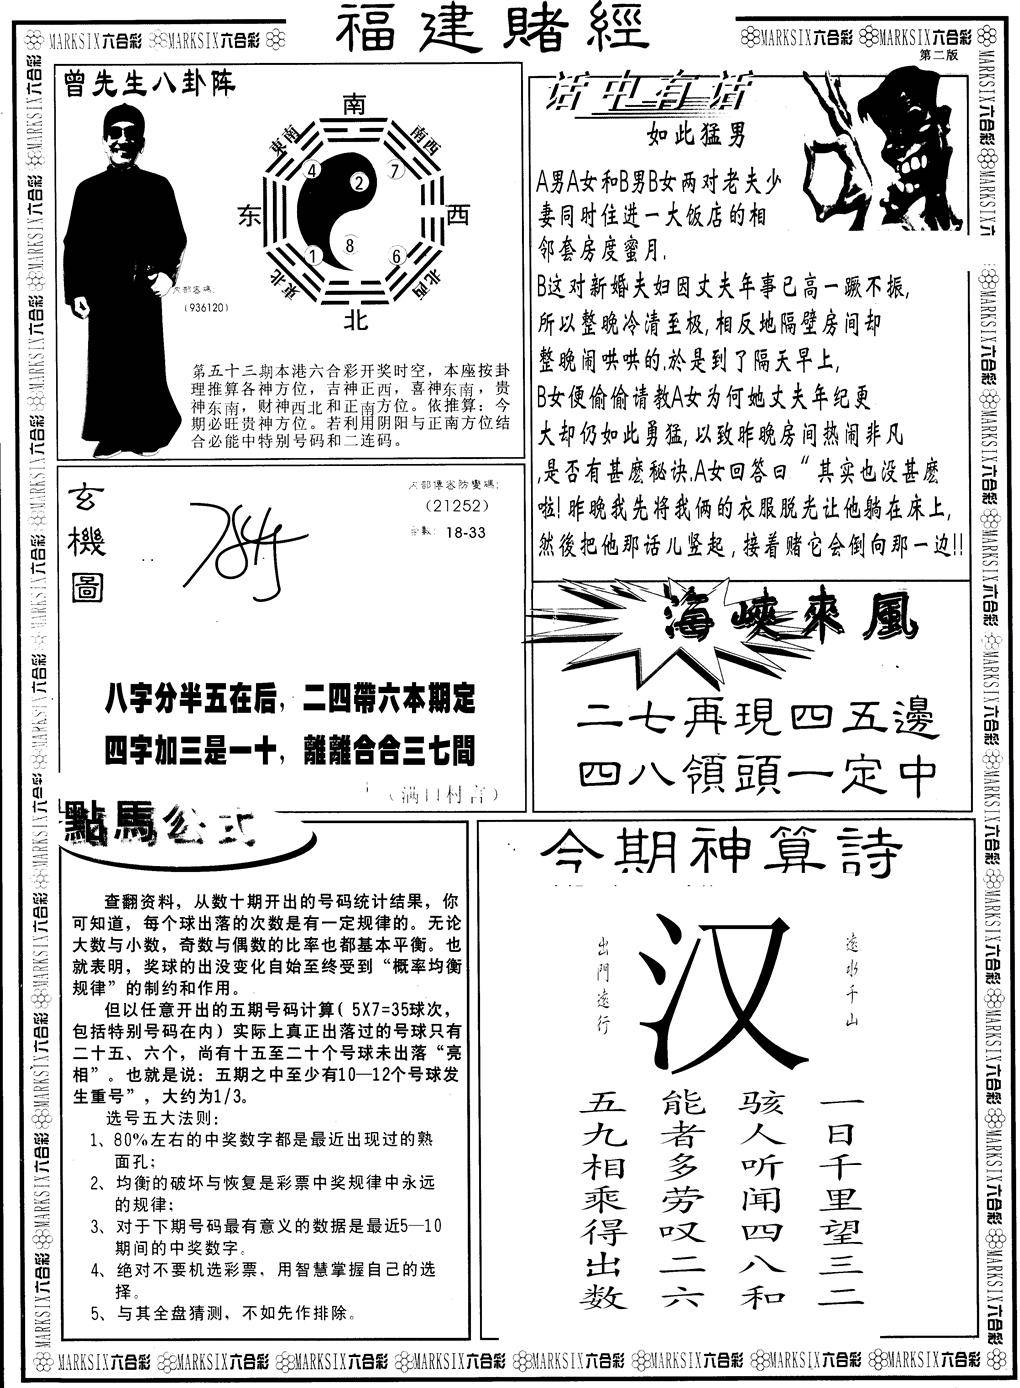 福建賭經
MARKSIX六合彩 MARKSIX六合彩
MARKSIX六合彩 MARKSIX六合彩
第二版
曾先生八卦阵
南
東南
南西
4
2
7
东
西
1
8
6
東北
北西
北
内部密碼:
(936120)
第五十三期本港六合彩开奖时空，本座按卦
理推算各神方位，吉神正西，喜神东南，贵
神东南，财神西北和正南方位。依推算：今
期必旺贵神方位。若利用阴阳与正南方位结
合必能中特别号码和二连码。
话中有话
如此猛男
A男A女和B男B女两对老夫少
妻同时住进一大饭店的相
邻套房度蜜月.
B这对新婚夫妇因丈夫年事已高一蹶不振,
所以整晚冷清至极,相反地隔壁房间却
整晚闹哄哄的.於是到了隔天早上,
B女便偷偷请教A女为何她丈夫年纪更
大却仍如此勇猛,以致昨晚房间热闹非凡
,是否有甚麽秘诀.A女回答曰“其实也没甚麽
啦!昨晚我先将我俩的衣服脱光让他躺在床上,
然後把他那话儿竖起,接着赌它会倒向那一边!!
玄機圖
内部傳密防變碼:
(21252)
18-33
八字分半五在后，二四帶六本期定
四字加三是一十，離離合合三七間
（满口村言）
海峽來風
二七再現四五邊
四八領頭一定中
點馬公式
查翻资料，从数十期开出的号码统计结果，你
可知道，每个球出落的次数是有一定规律的。无论
大数与小数，奇数与偶数的比率也都基本平衡。也
就表明，奖球的出没变化自始至终受到“概率均衡
规律”的制约和作用。
但以任意开出的五期号码计算(5X7=35球次，
包括特别号码在内)实际上真正出落过的号球只有
二十五、六个，尚有十五至二十个号球未出落“亮
相”。也就是说：五期之中至少有10—12个号球发
生重号”，大约为1/3。
选号五大法则：
1、80%左右的中奖数字都是最近出现过的熟
面孔；
2、均衡的破坏与恢复是彩票中奖规律中永远
的规律；
3、对于下期号码最有意义的数据是最近5—10
期间的中奖数字。
4、绝对不要机选彩票，用智慧掌握自己的选
择。
5、与其全盘猜测，不如先作排除。
今期神算詩
遠水千山
汉
出門遠行
一日千里望三二
骇人听闻四八和
能者多劳叹二六
五九相乘得出数
MARKSIX六合彩 MARKSIX六合彩 MARKSIX六合彩 MARKSIX六合彩 MARKSIX六合彩 MARKSIX六合彩 MARKSIX六合彩 MARKSIX六合彩